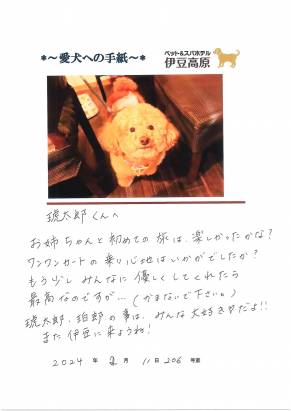 *～愛犬への手紙～*
ペット&スパホテル
伊豆高原
琥太郎くんへ
お姉ちゃんと初めての旅は、楽しかったかな?
ワンワンカートの乗り心地はいかがでしたか?
もう少しみんなに優しくしてくれたら
最高なのですが…(かまないで下さい。)
琥太郎、珀郎の事は、みんな大好きだよ!!
また伊豆に来ようね!
2024年 2月 11日 206号室